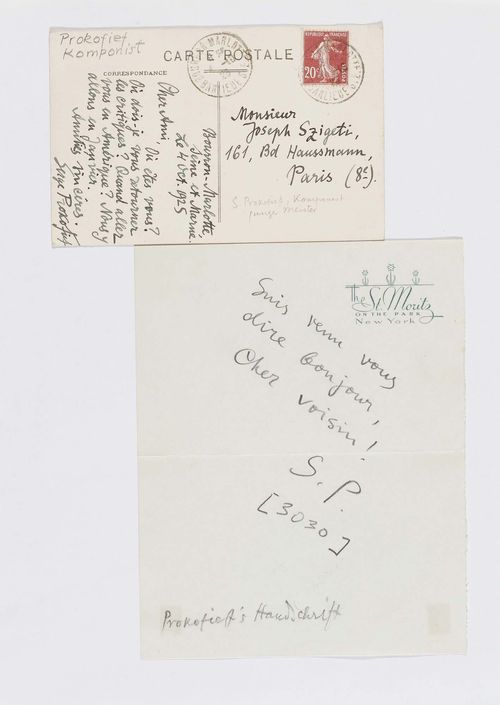 Prokofief
Komponist
CARTE POSTALE
CORRESPONDANCE
Bourron-Marlotte,
Seine et Marne.
Le 4 Oct. 1925
Cher Ami,
Où êtes vous?
Où dois-je vous retourner
les critiques? Quand allez
vous en Amérique? Nous y
allons en Janvier.
Amitiés sincères.
Serge Prokofieff
RÉPUBLIQUE FRANÇAISE
20c
POSTES
Monsieur
Joseph Szigeti,
161, Bd Haussmann,
Paris (8e).
S. Prokofieff, Komponist
junger Meister
The St. Moritz
ON THE PARK
New York
Suis venu vous
dire bonjour,
Cher voisin!
S.P.
[3030]
Prokofieff's Handschrift